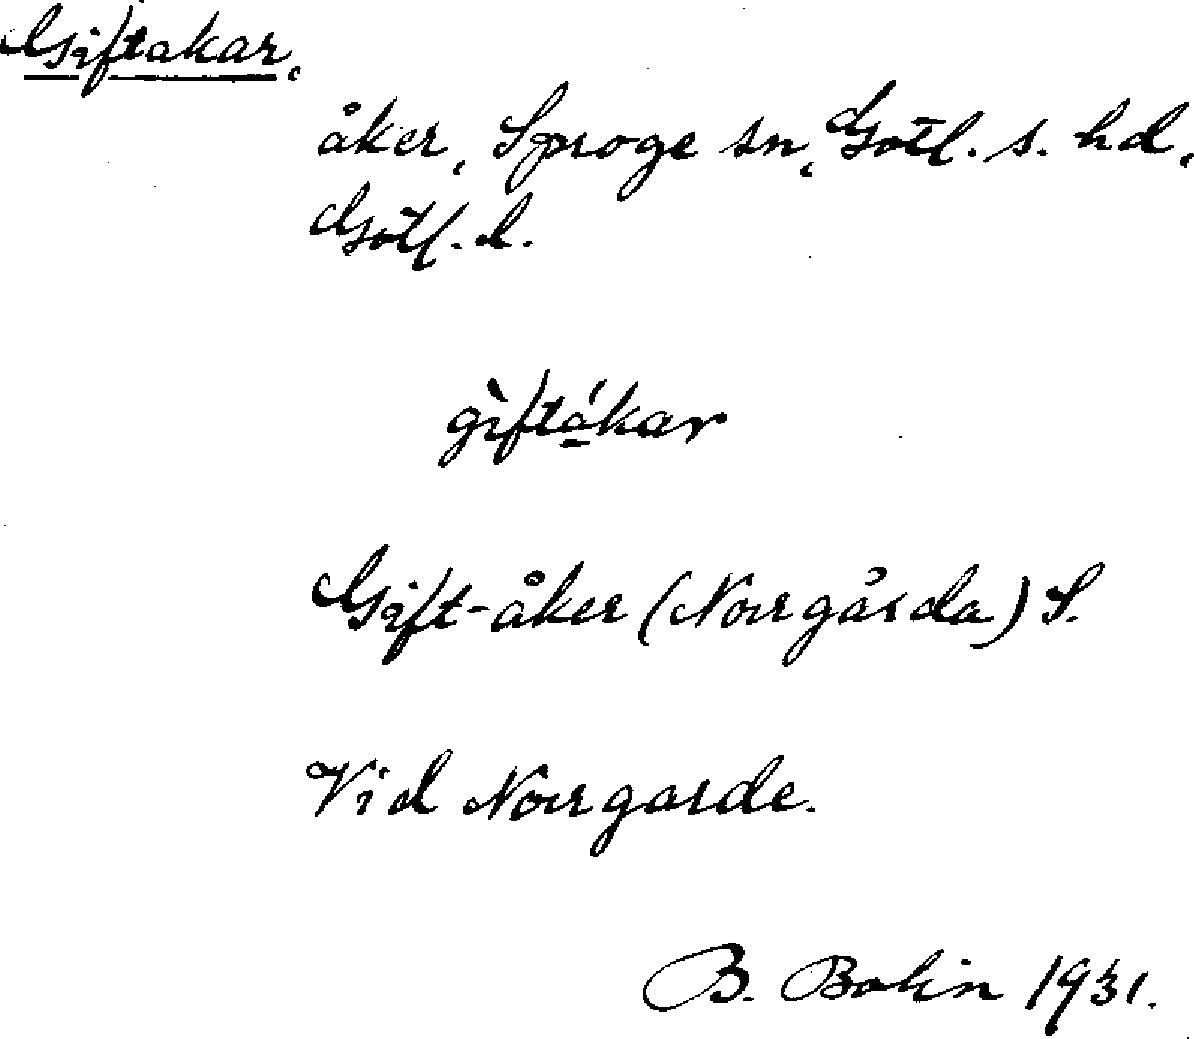 Giftakar,
åker, Sproge sn, Gotl. s. hd,
Gotl. l.
gìftá̱kar
Gift-åker (Norrgårda) S.
Vid Norrgarde.
B. Bolin 1931.